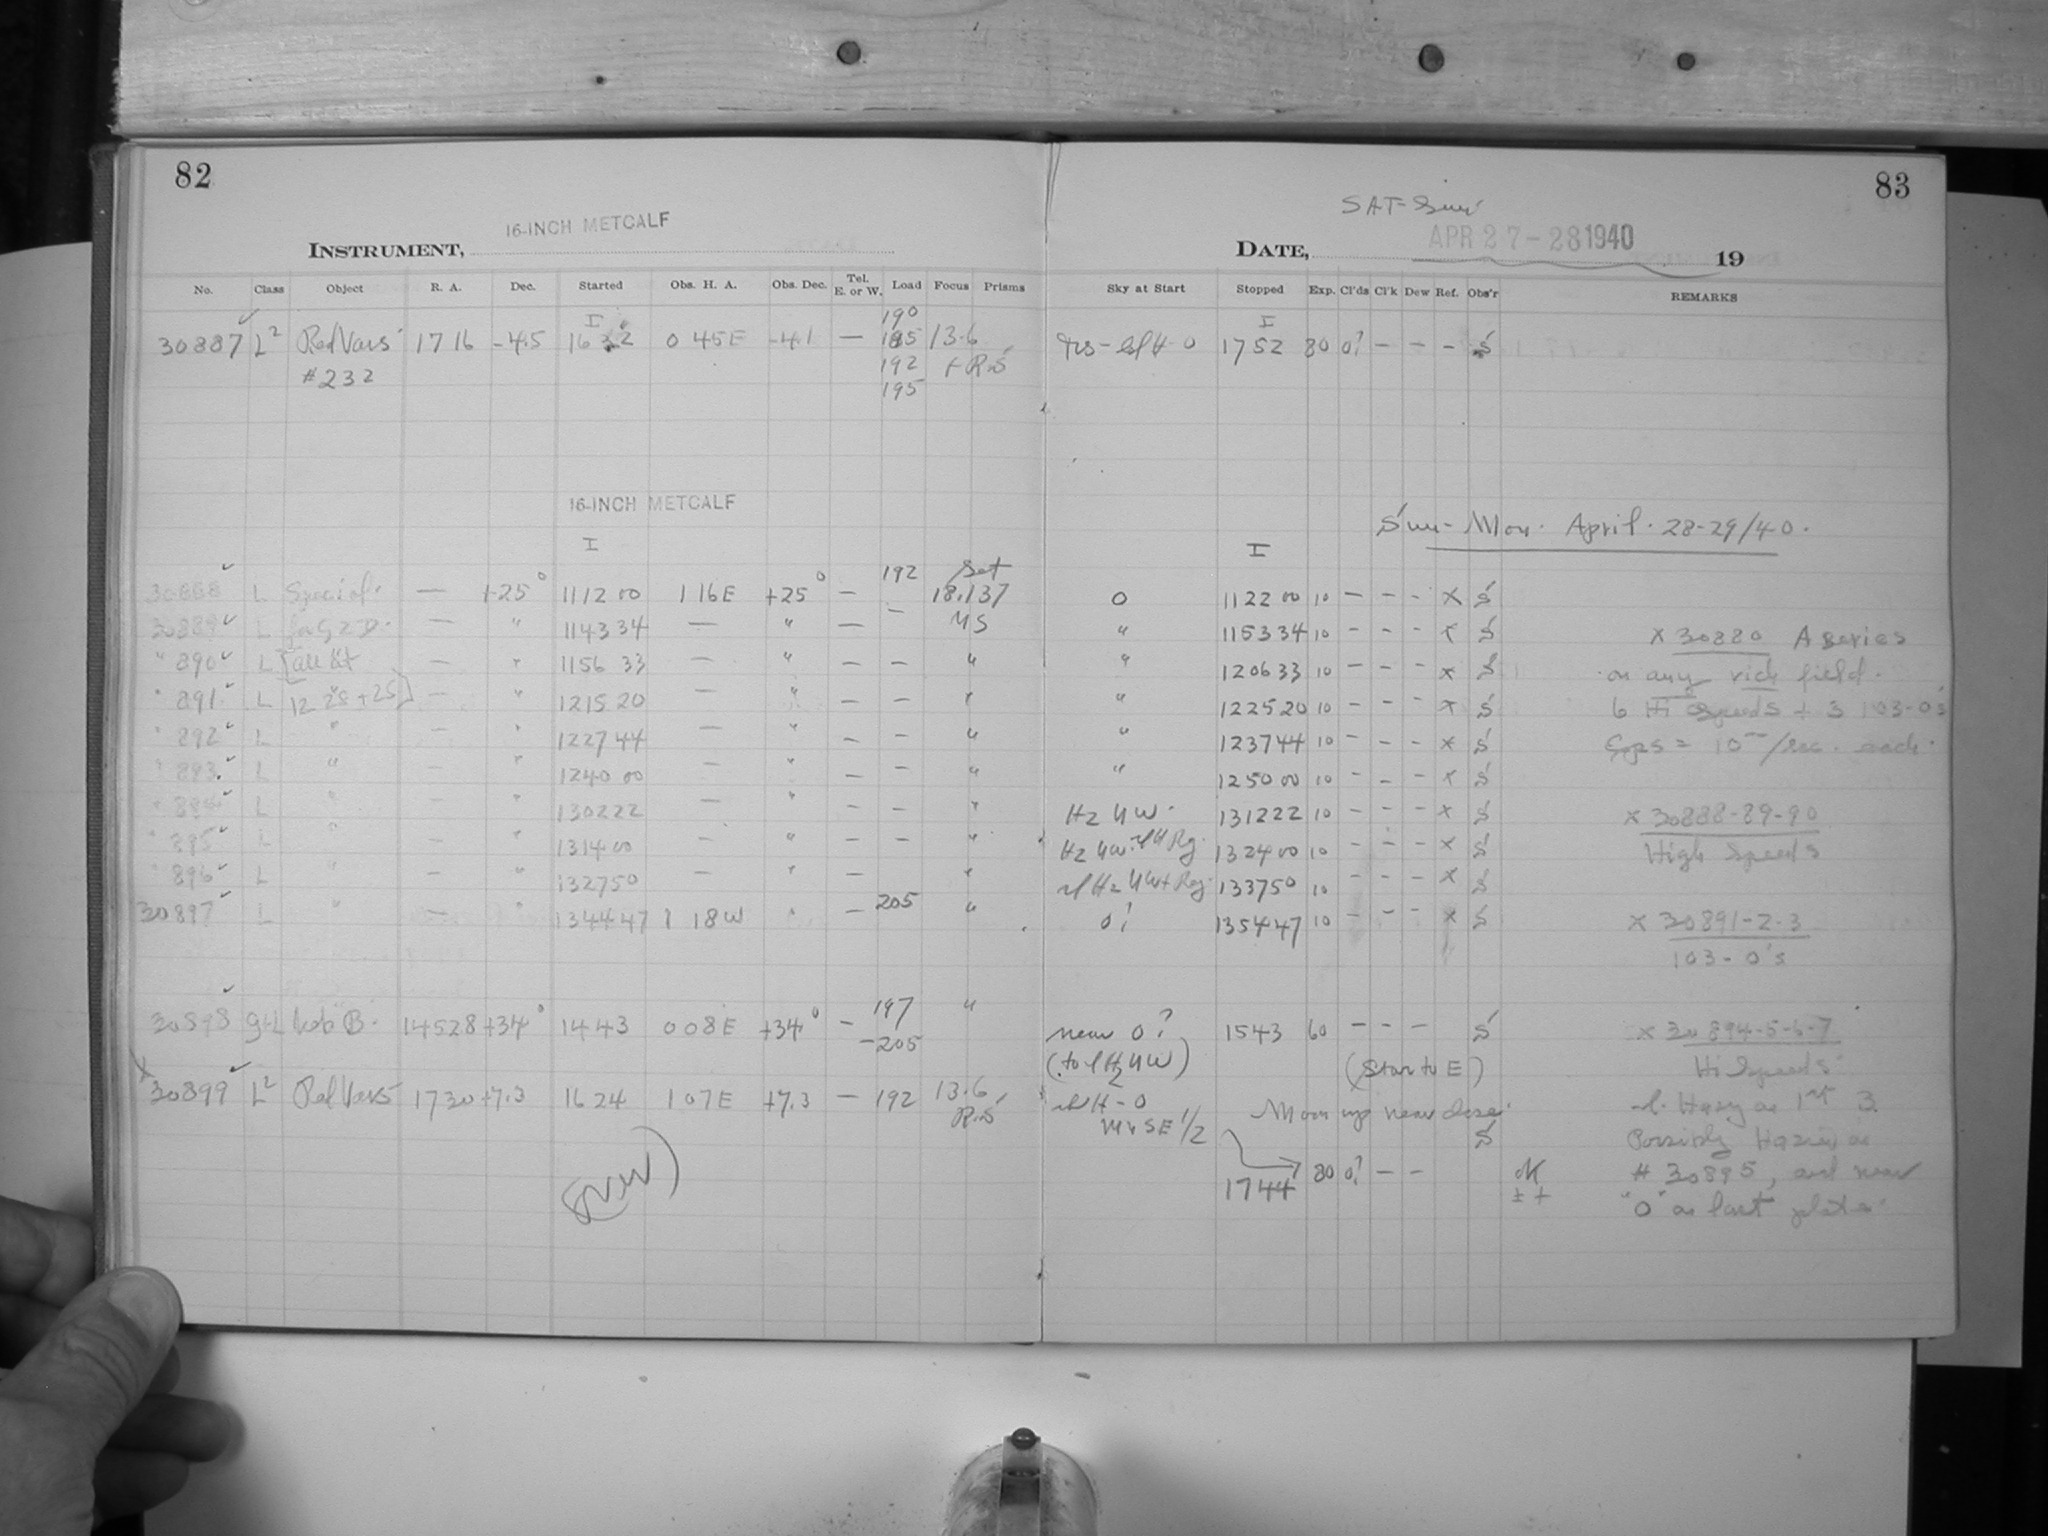 82
83
16-INCH METCALF
SAT-Sun
INSTRUMENT,
DATE, APR 27-28 1940 19
No. Class Object R. A. Dec. Started Obs. H. A. Obs. Dec. Tel. E. or W. Load Focus Prisms Sky at Start Stopped Exp. Cl'ds Cl'k Dew Ref. Obs'r REMARKS
I 190 I
30887 L² Red Vars 17 16 -4.5 16 32 0 45E -4.1 — 185 13.6 1752 80 0? — — — S
#232 192 + R.S
195
16-INCH METCALF
Sun-Mon. April. 28-29/40.
I I
192 Set
30888 L Special. — +25° 1112 00 1 16E +25° — 18.137 0 1122 00 10 — — — X S
30889 L — " 1143 34 — " — — " 1153 34 10 — — — X S
" 890 L — " 1156 33 — " — — " " 1206 33 10 — — — X S
" 891 L 12 28 +25 — " 1215 20 — " — — " " 1225 20 10 — — — X S
" 892 L " — " 1227 44 — " — — " " 1237 44 10 — — — X S
" 893 L " — " 1240 00 — " — — " " 1250 00 10 — — — X S
" 894 L " — " 1302 22 — " — — " Hz NW. 1312 22 10 — — — X S
" 895 L " — " 1314 00 — " — — " Hz NW. 1324 00 10 — — — X S
" 896 L " — " 1327 50 — " — " 1337 50 10 — — — X S
30897 L " — " 1344 47 1 18W " — 205 " 0? 1354 47 10 — — — X S
X 30880 A series
on any rich field.
6 Hi Speeds + 3 103-0's
Exps = 10 each.
X 30888-89-90
High Speeds
X 30891-2-3
103-0's
30898 L 14 528 +34° 1443 0 08E +34° — 197 " near 0? 1543 60 — — — S
-205
(Star to E)
X 30894-5-6-7
Hi Speeds
30899 L² Red Vars 17 30 +7.3 16 24 1 07E +7.3 — 192 13.6 Moon up near close.
R.S SE 1/2 S
1744 80 0? — — OK
± +
Hazy as 1st 3.
Possibly Hazier as
# 30895, and near
"0" as last plate.
(over)